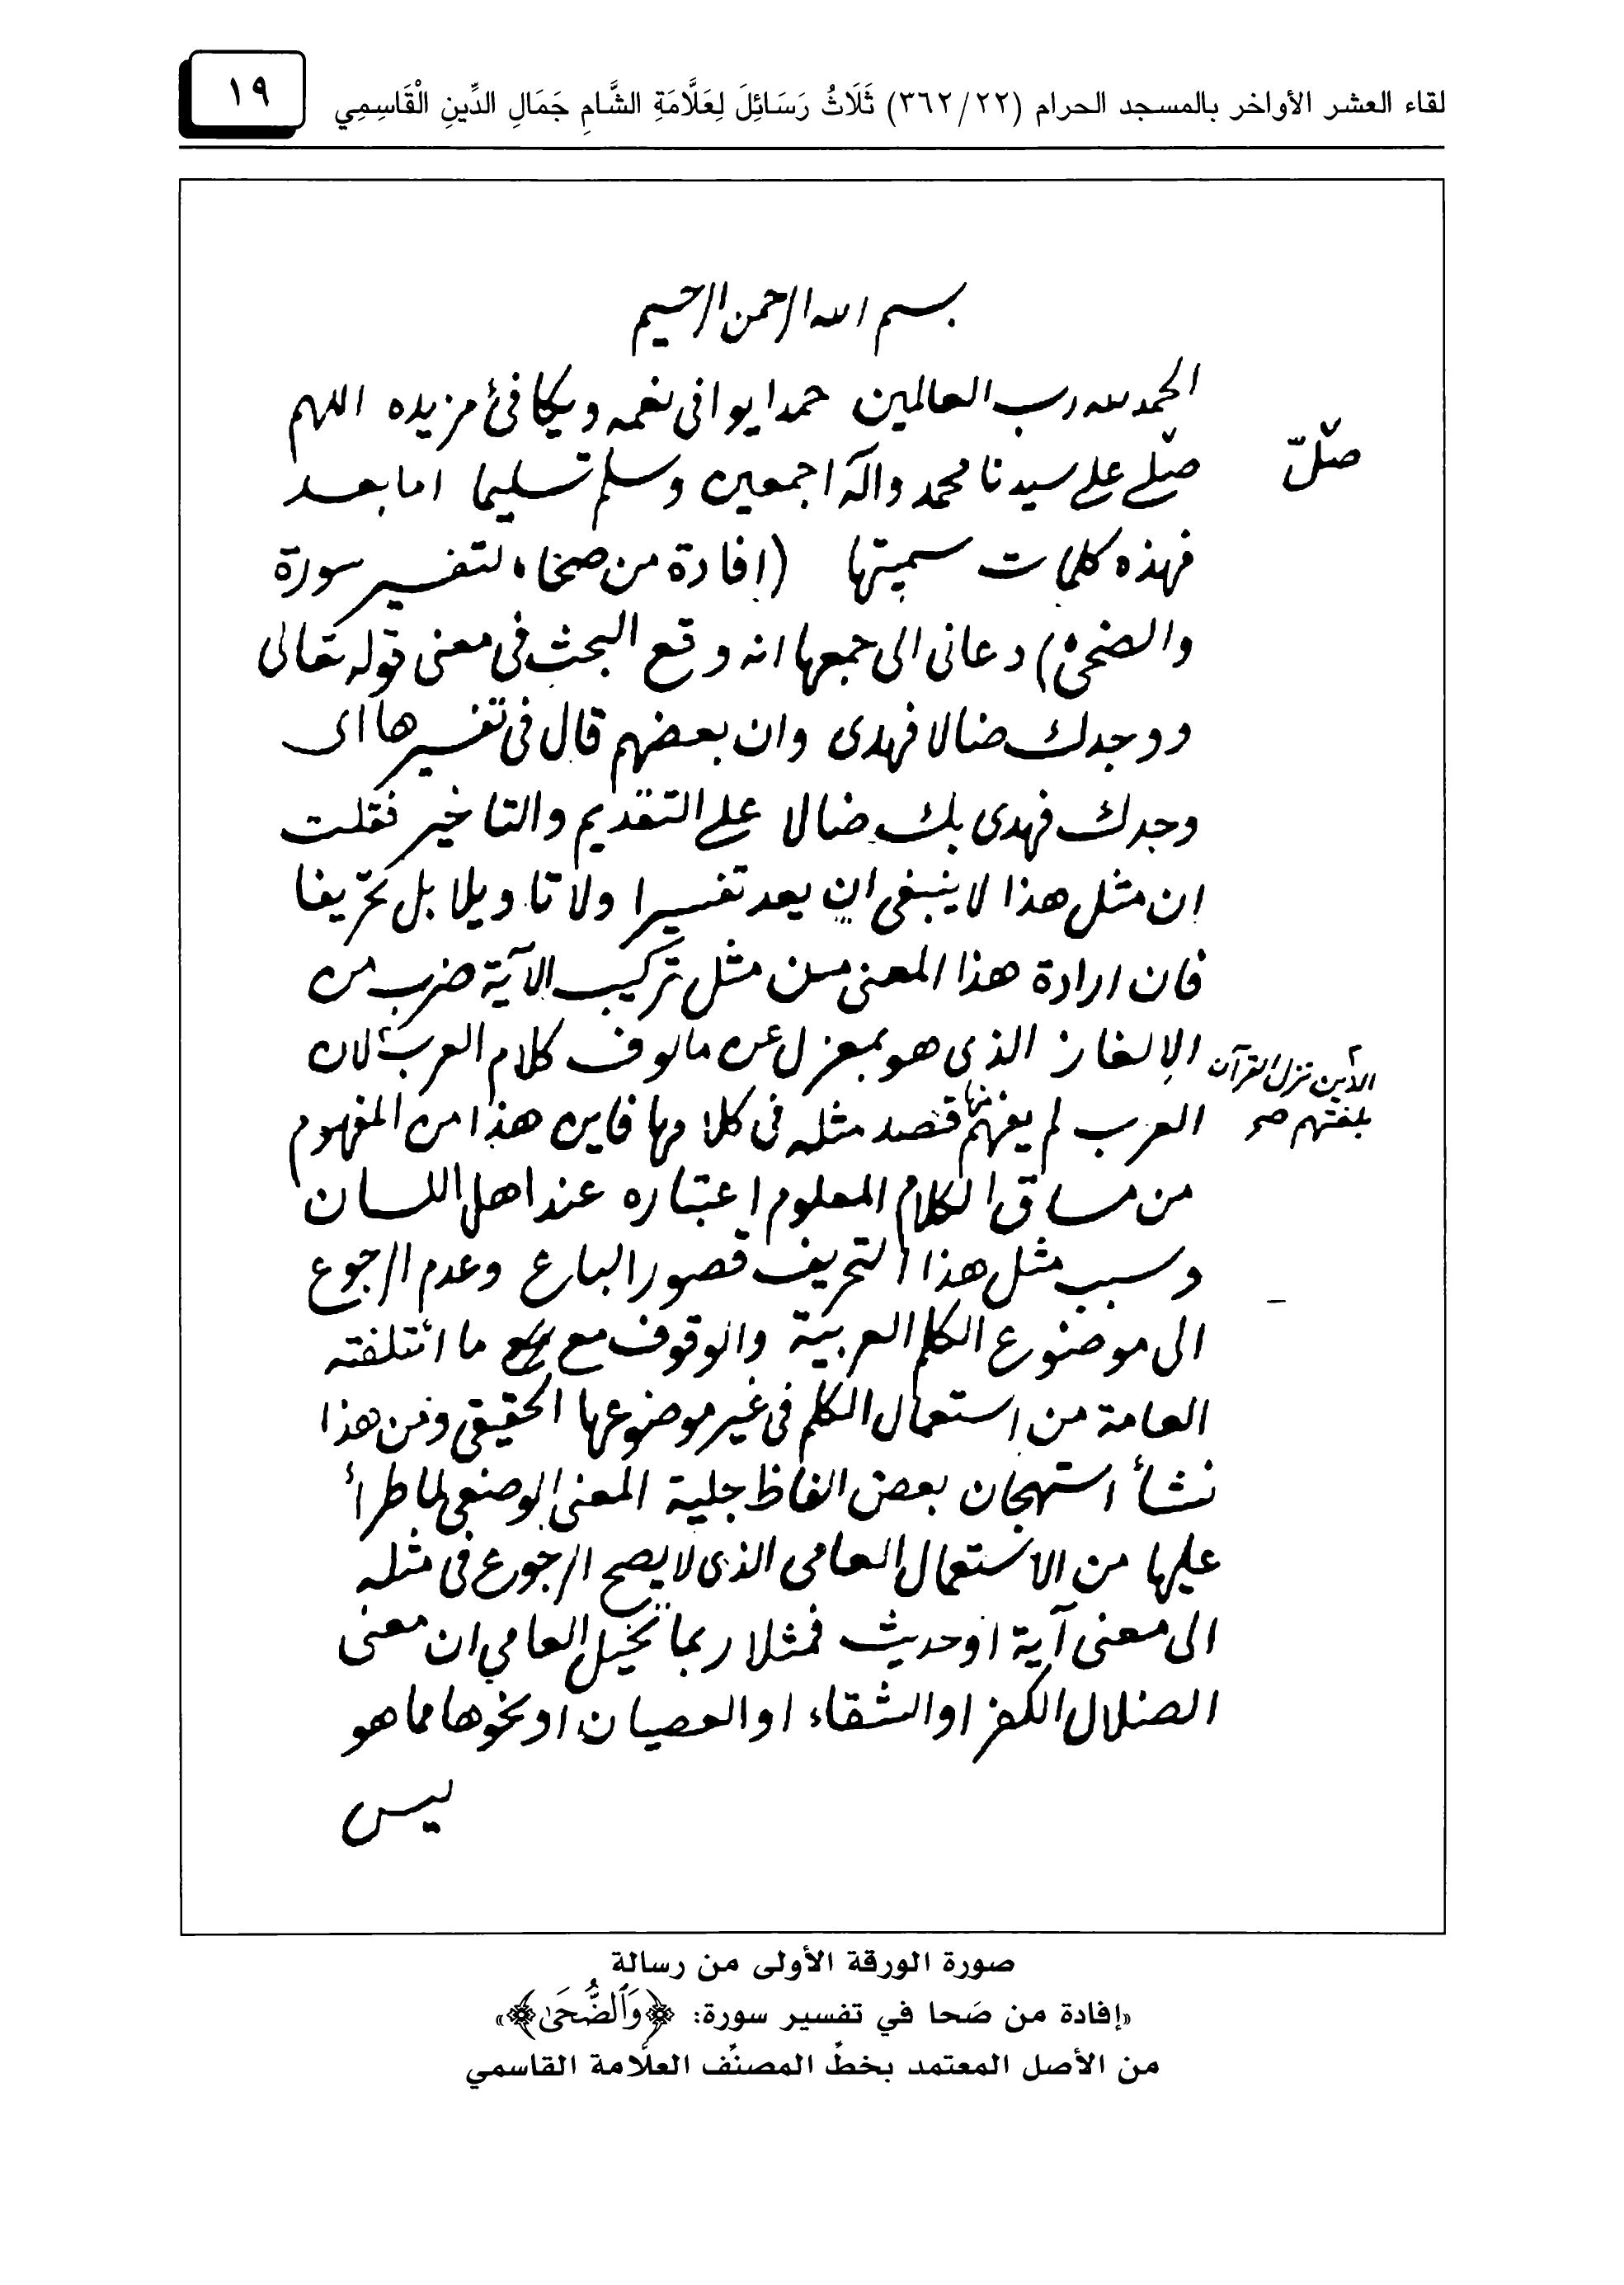 لقاء العشر الأواخر بالمسجد الحرام (٣٦٢/٢٢) ثَلَاثُ رَسَائِلَ لِعَلَّامَةِ الشَّامِ جَمَالِ الدِّينِ الْقَاسِمِي
١٩
بسم الله الرحمن الرحيم
الحمد لله رب العالمين حمدا يوافى نعمه ويكافئ مزيده اللهم
صلّ
صلى على سيدنا محمد وآله اجمعين وسلم تسليما اما بعد
فهذه كلمات سميتها (افادة من صحا، لتفسير سورة
والضحى) دعانى الى جمعها انه وقع البحث فى معنى قوله تعالى
ووجدك ضالا فهدى وان بعضهم قال فى تفسيرها اى
وجدك فهدى بك ضالا على التقديم والتاخير فقلت
ان مثل هذا لا ينبغى ان يعد تفسيرا ولا تاويلا بل تحريفا
فان ارادة هذا المعنى من مثل تركيب الآية ضرب من
الالغاز الذى هو بمعزل عن مالوف كلام العرب لان
الذين نزل القرآن
بلغتهم صح
العرب لم يفهم منها قصد مثله فى كلامها فاين هذا من المفهوم
من مساق الكلام المعلوم اعتباره عند اهل اللسان
وسبب مثل هذا التحريف قصور الباع وعدم الرجوع
الى موضوع الكلم العربية والوقوف مع ما ائتلفته
العامة من استعمال الكلم فى غير موضوعها الحقيقى ومن هذا
نشأ استهجان بعض الفاظ جلية المعنى الوضعى لما طرأ
عليها من الاستعمال العامى الذى لا يصح الرجوع فى مثله
الى معنى آية او حديث فمثلا ربما تخيل العامي ان معنى
الضلال الكفر او الشقاء او العصيان او نحوها مما هو
ليس
صورة الورقة الأولى من رسالة
«إفادة من صَحا في تفسير سورة: ﴿وَٱلضُّحَىٰ﴾»
من الأصل المعتمد بخطِّ المصنِّف العلّامة القاسمي